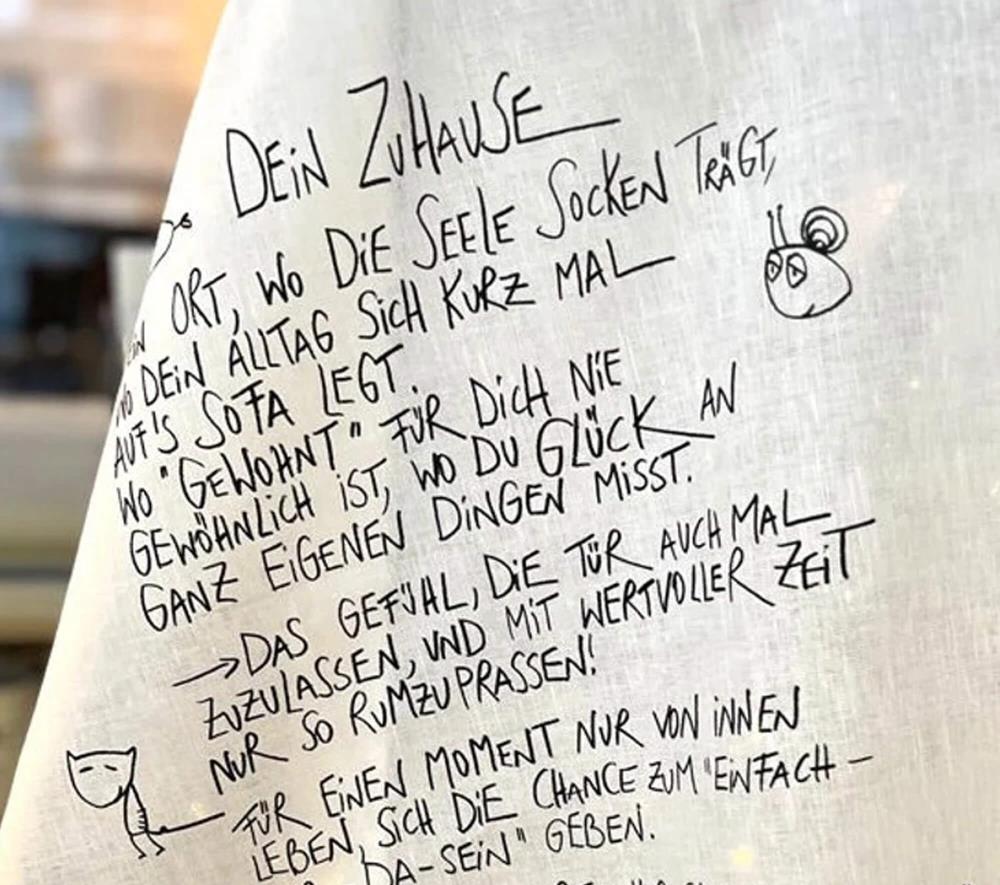 DEIN ZUHAUSE
ORT, WO DIE SEELE SOCKEN TRÄGT,
WO DEIN ALLTAG SICH KURZ MAL
AUF'S SOFA LEGT.
WO "GEWOHNT" FÜR DICH NIE
GEWÖHNLICH IST, WO DU GLÜCK AN
GANZ EIGENEN DINGEN MISST.
→ DAS GEFÜHL, DIE TÜR AUCH MAL
ZUZULASSEN, UND MIT WERTVOLLER ZEIT
NUR SO RUMZUPRASSEN!
FÜR EINEN MOMENT NUR VON INNEN
LEBEN, SICH DIE CHANCE ZUM "EINFACH-
DA-SEIN" GEBEN.